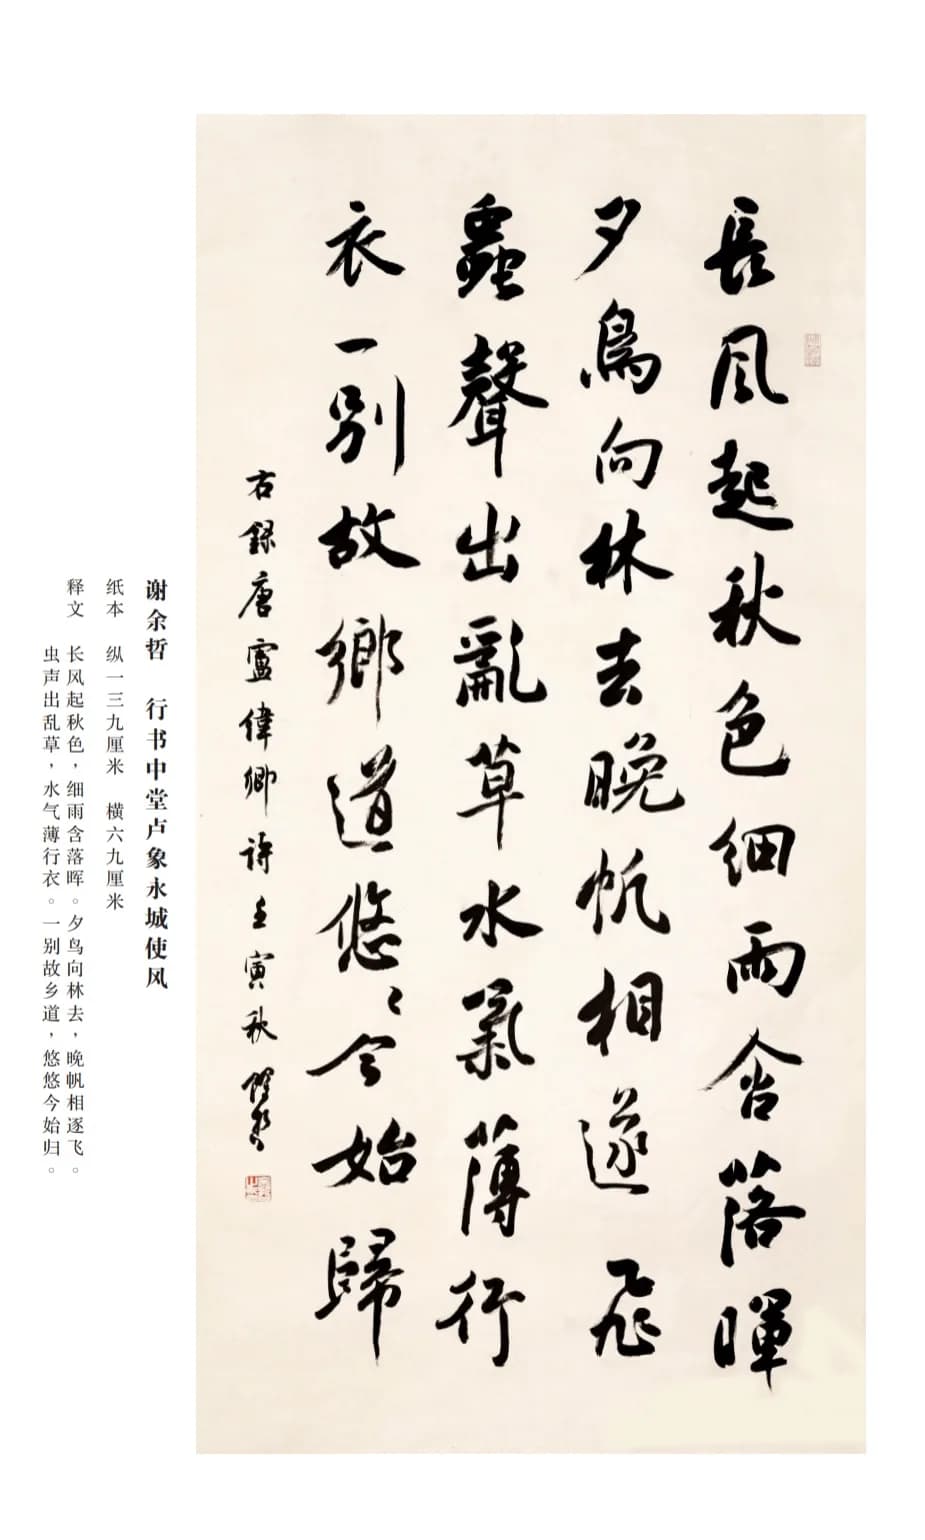 長風起秋色細雨含落暉
夕鳥向林去晚帆相逐飛
蟲聲出亂草水氣薄行
衣一別故鄉道悠〻今始歸
右錄唐盧偉卿詩壬寅秋
谢余哲　行书中堂卢象永城使风
纸本　纵一三九厘米　横六九厘米
释文　长风起秋色，细雨含落晖。夕鸟向林去，晚帆相逐飞。
虫声出乱草，水气薄行衣。一别故乡道，悠悠今始归。